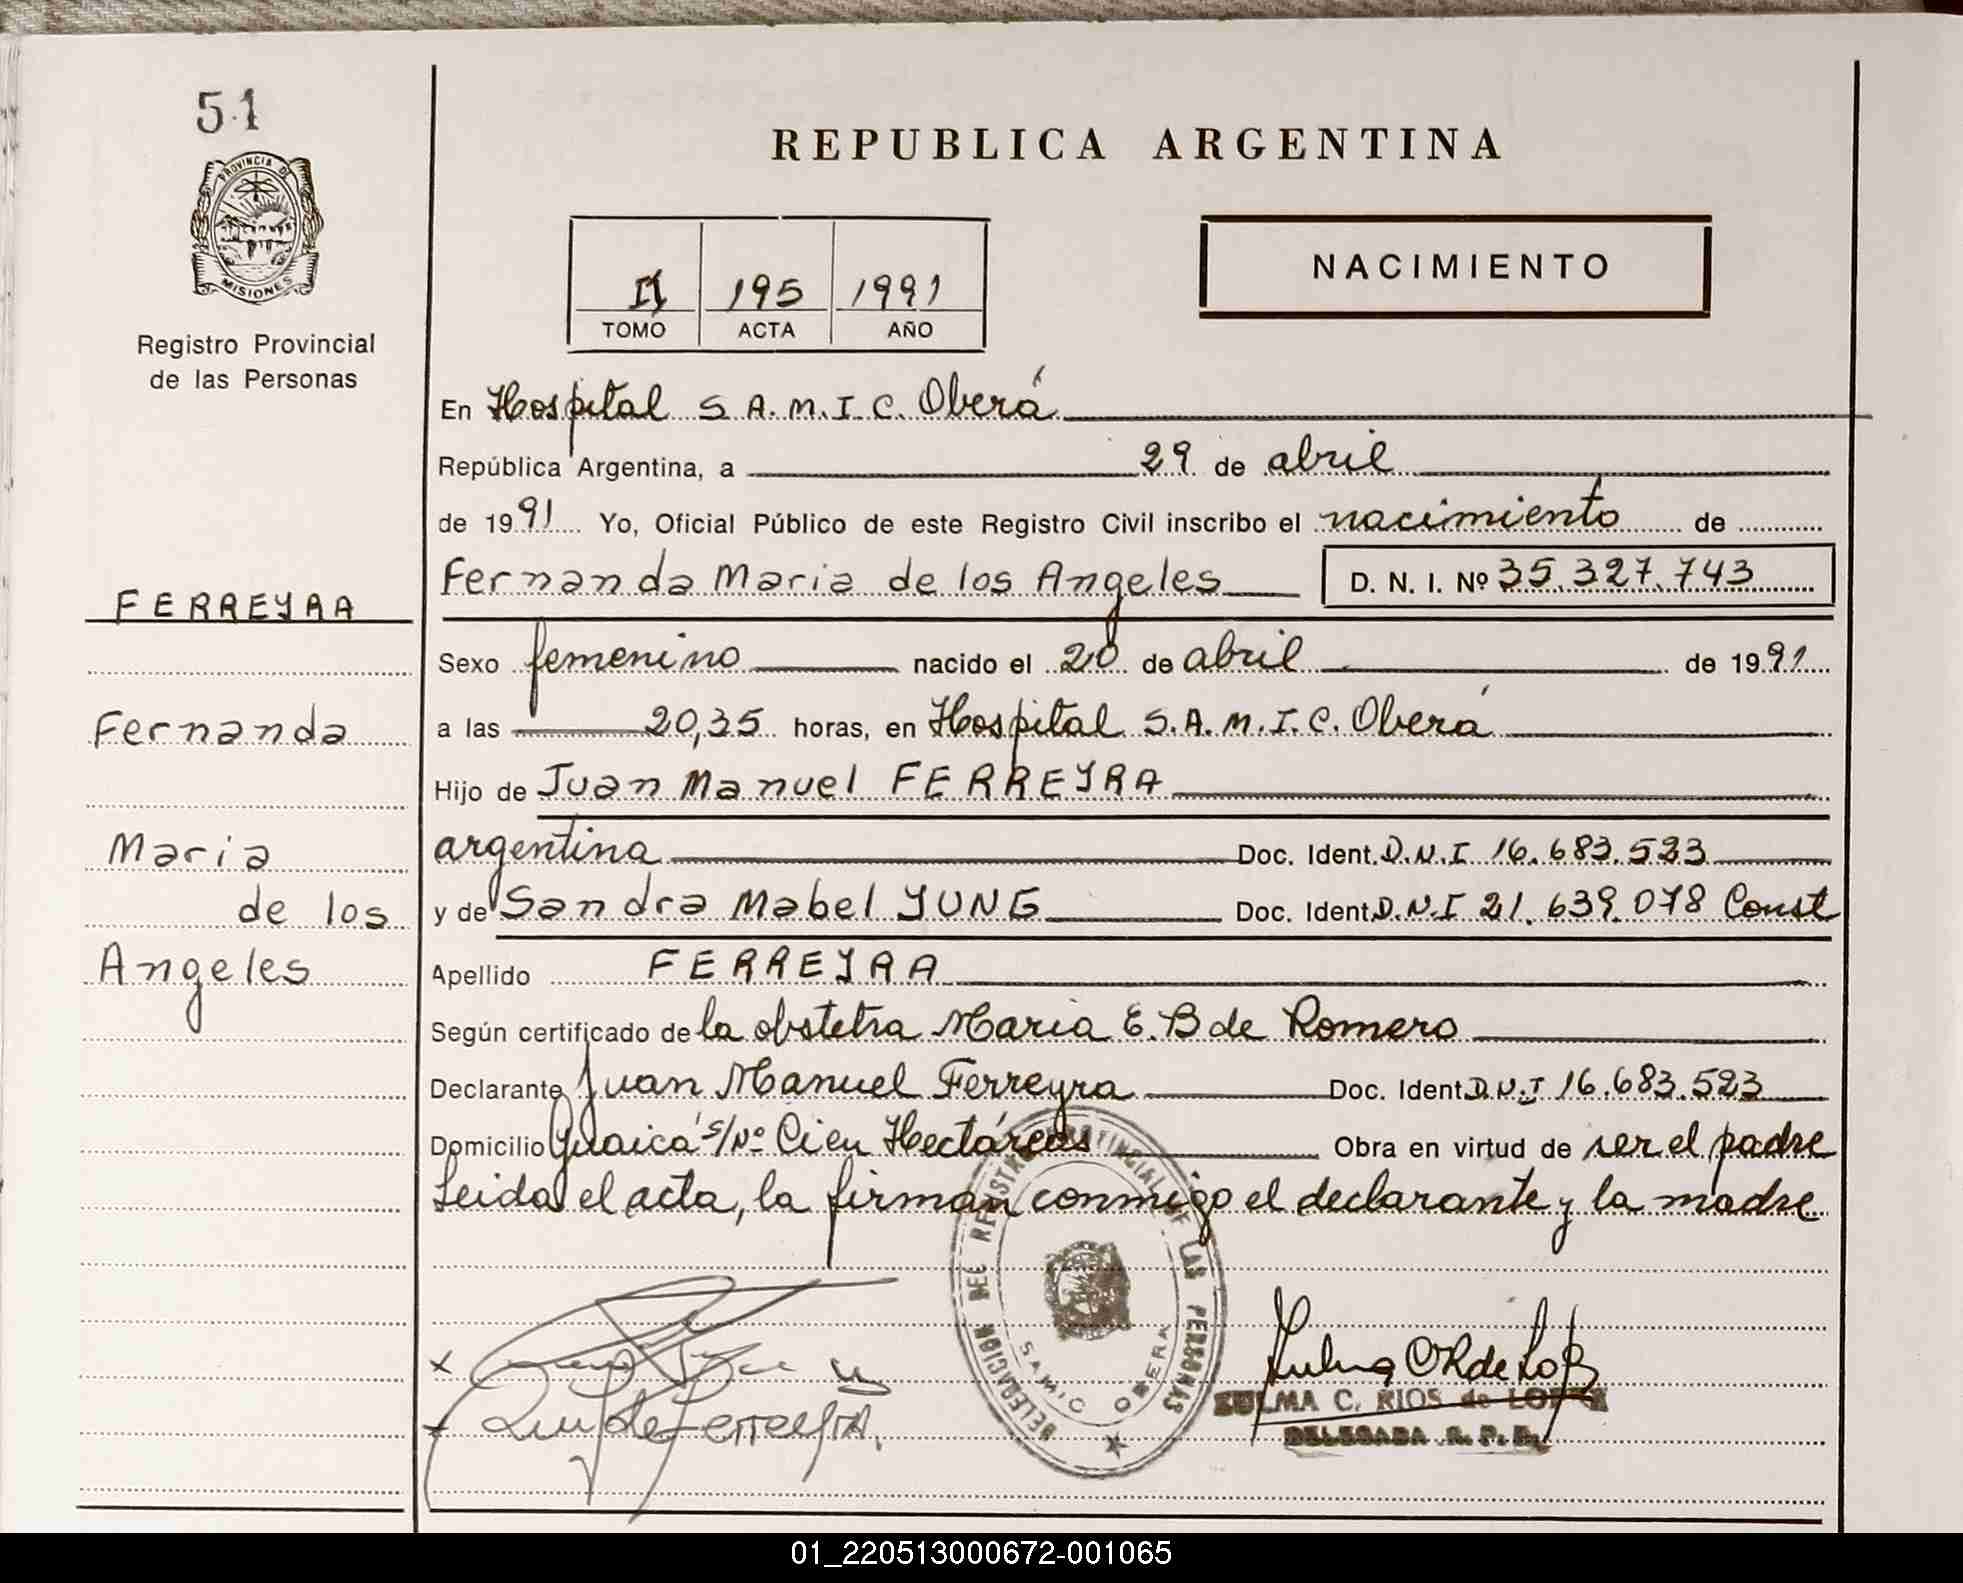 51
PROVINCIA DE
MISIONES
Registro Provincial
de las Personas
FERREYRA
Fernanda
Maria
de los
Angeles
REPUBLICA ARGENTINA
II 195 1991
TOMO ACTA AÑO
NACIMIENTO
En Hospital S A. M. I. C. Oberá
República Argentina, a 29 de abril
de 1991 Yo, Oficial Público de este Registro Civil inscribo el nacimiento de
Fernanda Maria de los Angeles D. N. I. Nº 35.327.743
Sexo femenino nacido el 20 de abril de 1991
a las 20,35 horas, en Hospital S. A. M. I. C. Oberá
Hijo de Juan Manuel FERREYRA
argentina Doc. Ident. D.N.I 16.683.523
y de Sandra Mabel YUNG Doc. Ident. D.N.I 21.639.078 Const
Apellido FERREYRA
Según certificado de la obstetra Maria E. B de Romero
Declarante Juan Manuel Ferreyra Doc. Ident. D.N.I 16.683.523
Domicilio Guaicá s/Nº Cien Hectáreas Obra en virtud de ser el padre
Leida el acta, la firman conmigo el declarante y la madre
DELEGACION DEL REGISTRO PROVINCIAL DE LAS PERSONAS
SAMIC OBERA
de Ferreyra.
ZULMA C. RIOS de LOPEZ
DELEGADA R. P. P.
01_220513000672-001065